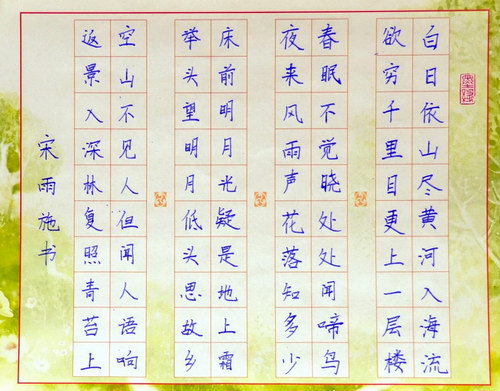 白日依山尽黄河入海流
欲穷千里目更上一层楼
春眠不觉晓处处闻啼鸟
夜来风雨声花落知多少
床前明月光疑是地上霜
举头望明月低头思故乡
空山不见人但闻人语响
返景入深林复照青苔上
宋雨施书